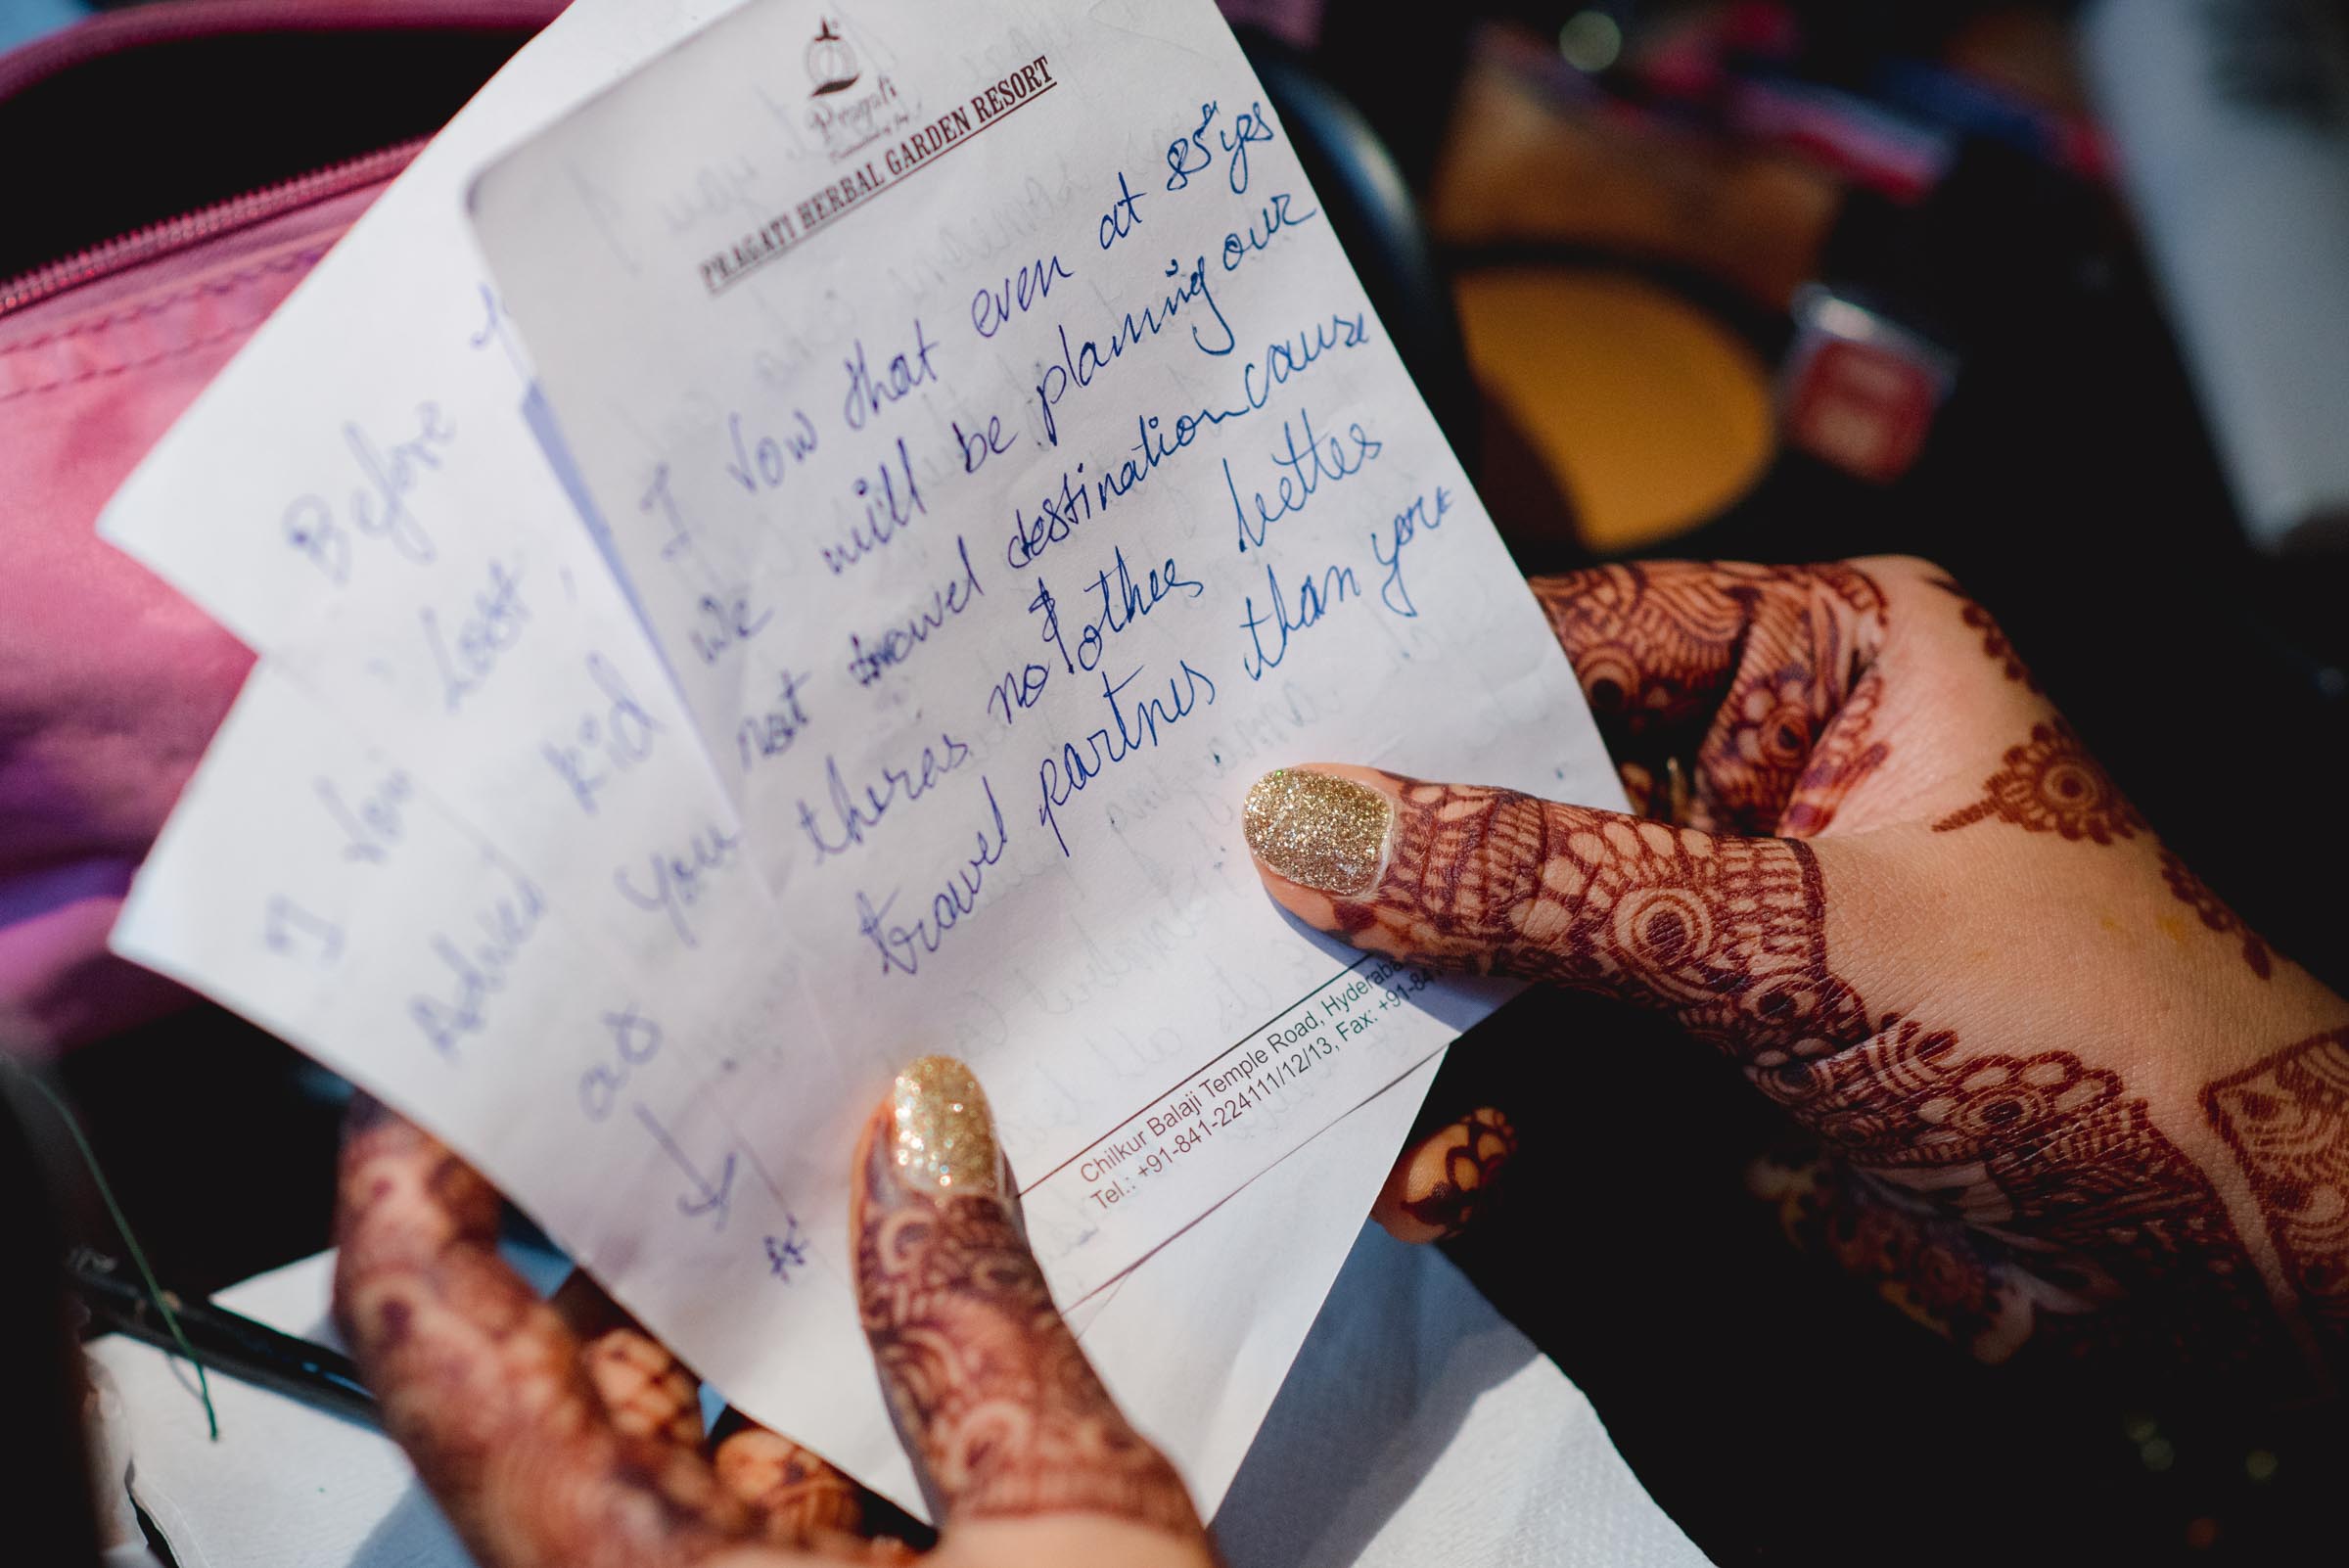 Pragati
PRAGATI HERBAL GARDEN RESORT
I vow that even at 85 yrs
we will be planning our
next travel destination cause
theres no other better
travel partner than you
Chilkur Balaji Temple Road, Hyderaba
Tel.: +91-841-224111/12/13, Fax: +91-841
Before
Last,
I
kid
as you